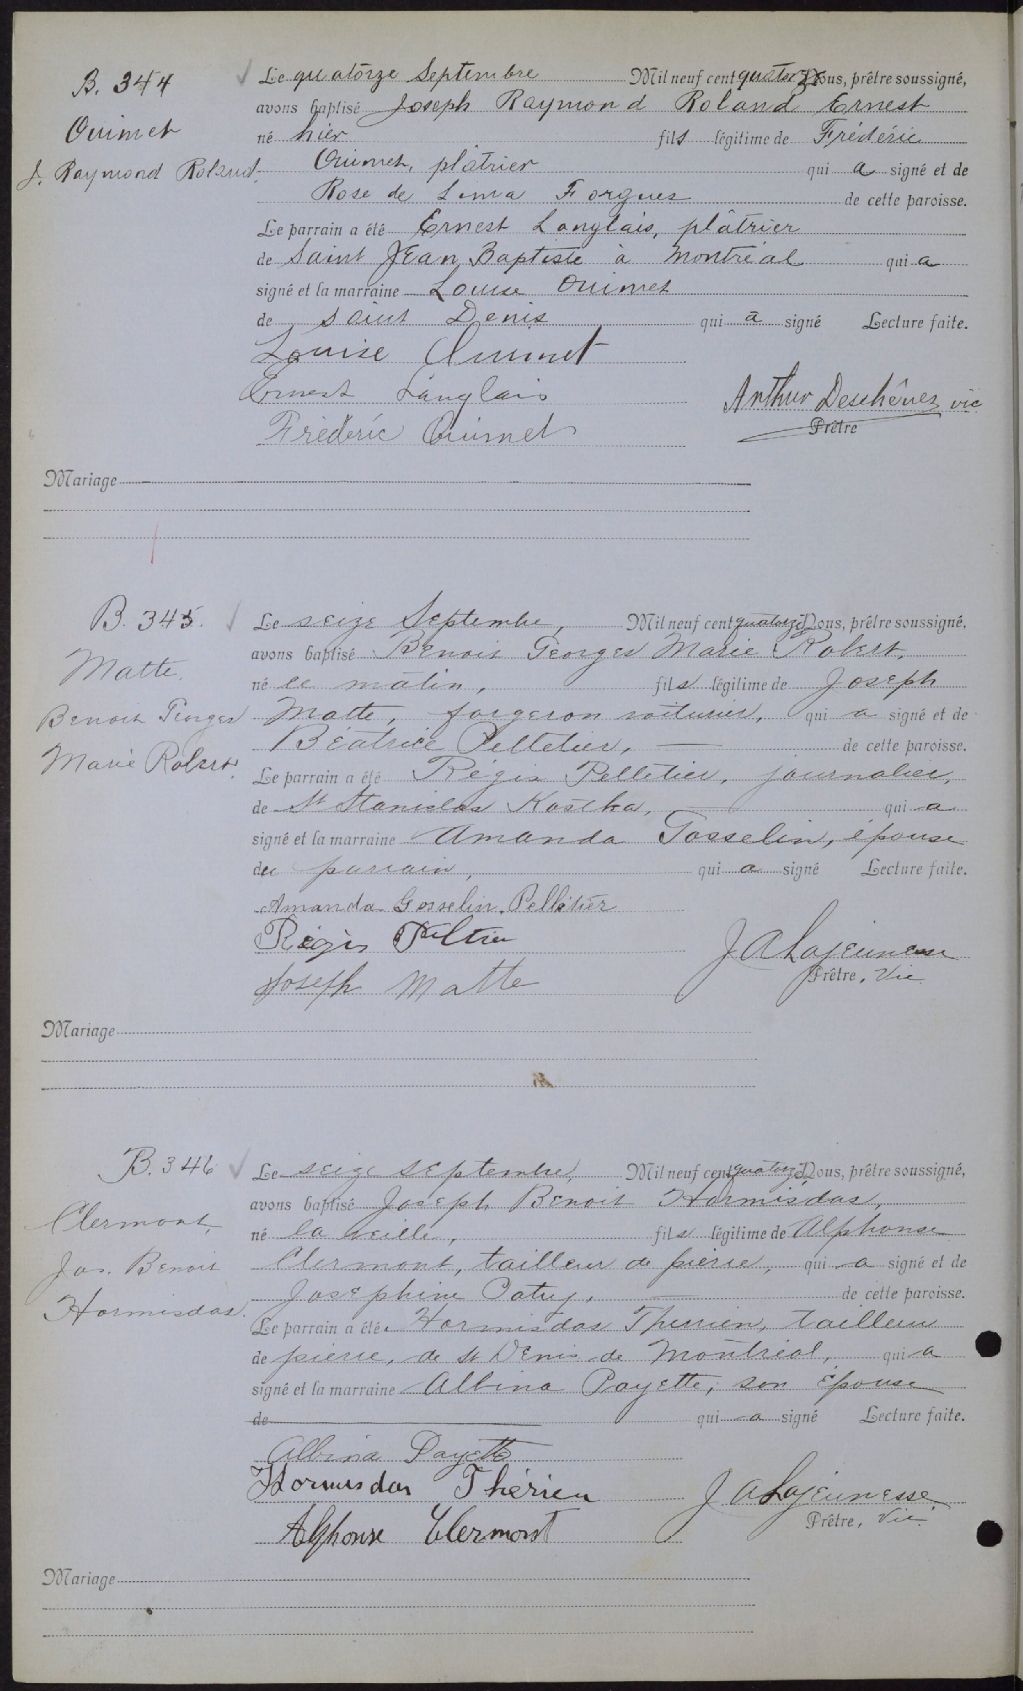 B. 344
Ouimet
J. Raymond Roland.
Le quatorze Septembre Mil neuf cent quatorze Nous, prêtre soussigné,
avons baptisé Joseph Raymond Roland Ernest
né hier fils légitime de Frédéric
Ouimet, plâtrier qui a signé et de
Rose de Lima Forgues de cette paroisse.
Le parrain a été Ernest Langlais, plâtrier
de Saint Jean Baptiste à Montréal qui a
signé et la marraine Louise Ouimet
de Saint Denis qui a signé Lecture faite.
Louise Ouimet
Ernest Langlais
Frédéric Ouimet
Arthur Deschênes vic
Prêtre
Mariage
B. 345.
Matte.
Benoit Georges
Marie Robert.
Le seize Septembre, Mil neuf cent quatorze Nous, prêtre soussigné,
avons baptisé Benoit Georges Marie Robert,
né ce matin, fils légitime de Joseph
Matte, forgeron voiturier, qui a signé et de
Béatrice Pelletier, de cette paroisse.
Le parrain a été Régis Pelletier, journalier,
de St Stanislas Kostka, qui a
signé et la marraine Amanda Gosselin, épouse
du parrain, qui a signé Lecture faite.
Amanda Gosselin. Pelletier
Régis Peltier
Joseph Matte
J A Lajeunesse
Prêtre, Vic.
Mariage
B. 346
Clermont,
Jos. Benoit
Hormisdas.
Le seize septembre, Mil neuf cent quatorze Nous, prêtre soussigné,
avons baptisé Joseph Benoit Hormisdas,
né la veille, fils légitime de Alphonse
Clermont, tailleur de pierre, qui a signé et de
Josephine Patry, de cette paroisse.
Le parrain a été Hormisdas Therien, tailleur
de pierre, de St Denis de Montréal, qui a
signé et la marraine Albina Payette, son épouse
de qui a signé Lecture faite.
Albina Payette
Hormisdas Thérien
Alphonse Clermont
J A Lajeunesse
Prêtre, Vic.
Mariage